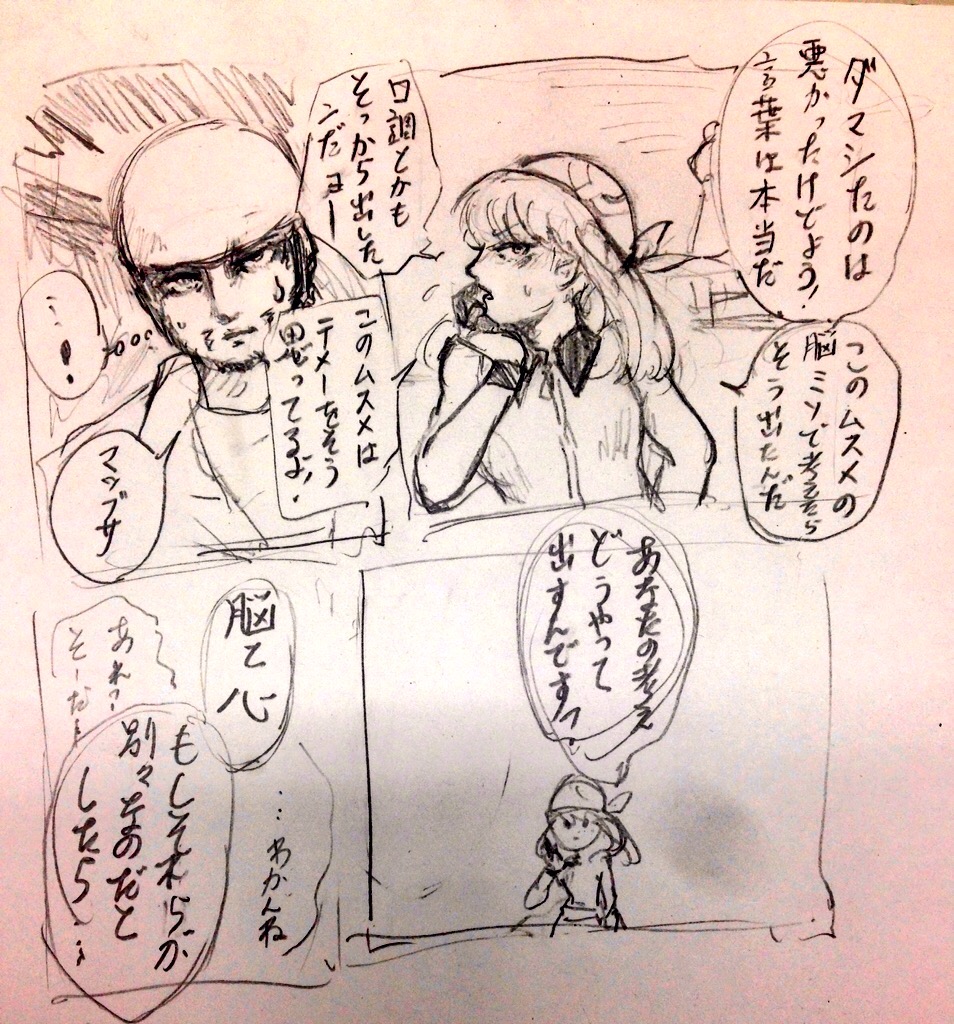 ダマシたのは
悪かったけどよう!
言葉は本当だ
このムスメの
脳ミソで考えたら
そう出たんだ
口調とかも
そっから出した
ンだヨー
このムスメは
テメーをそう
思ってるよ!
…!
マツブサ
あなたの考え
どうやって
出すんです?
…わかんね
脳て心
もしそれらが
別々なのだと
したら…
あれ?
そーだ